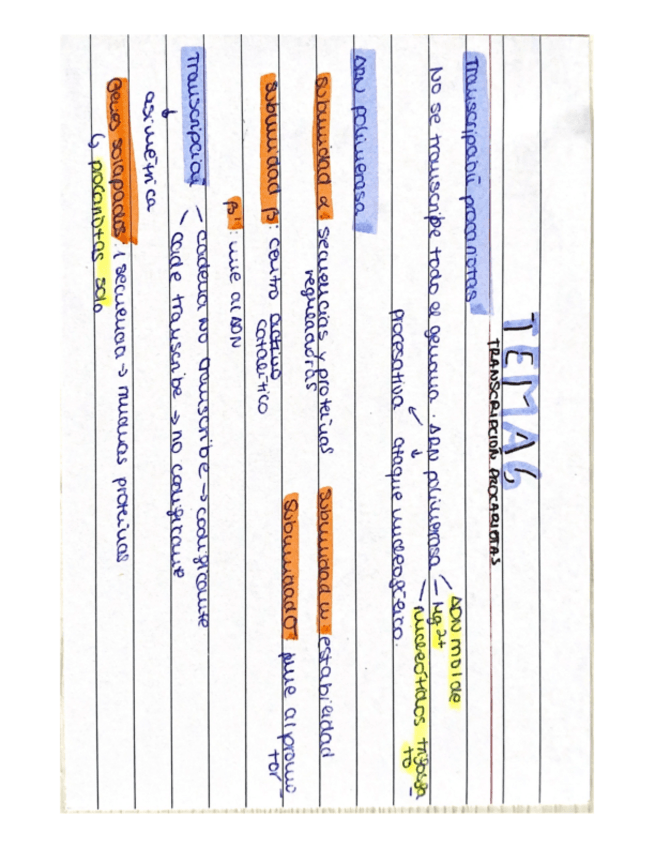 TEMA 6
TRANSCRIPCIÓN PROCARIOTAS
Transcripción procariotas
No se transcribe todo el genoma. ARN polimerasa
ADN molde
Mg 2+
nucleótidos trifosfa
to
procesativa ataque nucleofílico.
ARN polimerasa
Subunidad α: secuencias y proteínas
reguladoras
Subunidad ω: estabilidad
Subunidad β: centro activo
catalítico
Subunidad σ: une al promo-
tor
β': une al ADN
Transcripción - cadena no transcribe → codificante
cade transcribe → no codificante
asimétrica
Genes solapados: 1 secuencia → muchas proteínas
↳ procariotas solo